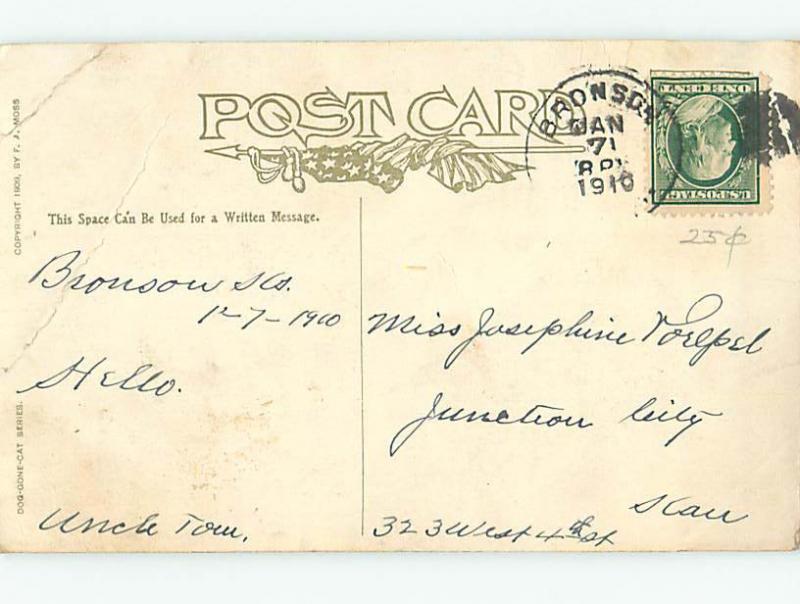 POST CARD
BRONSON
JAN
7
8 P
1910
ONE CENT
U.S.POSTAGE
25¢
COPYRIGHT 1909, BY F. J. MOSS
This Space Can Be Used for a Written Message.
Bronson Ks.
1-7-1910
Hello.
Uncle Tom.
Miss Josephine Voelpel
Junction City
Kan
323 West 4th st
DOG-GONE-CAT SERIES.